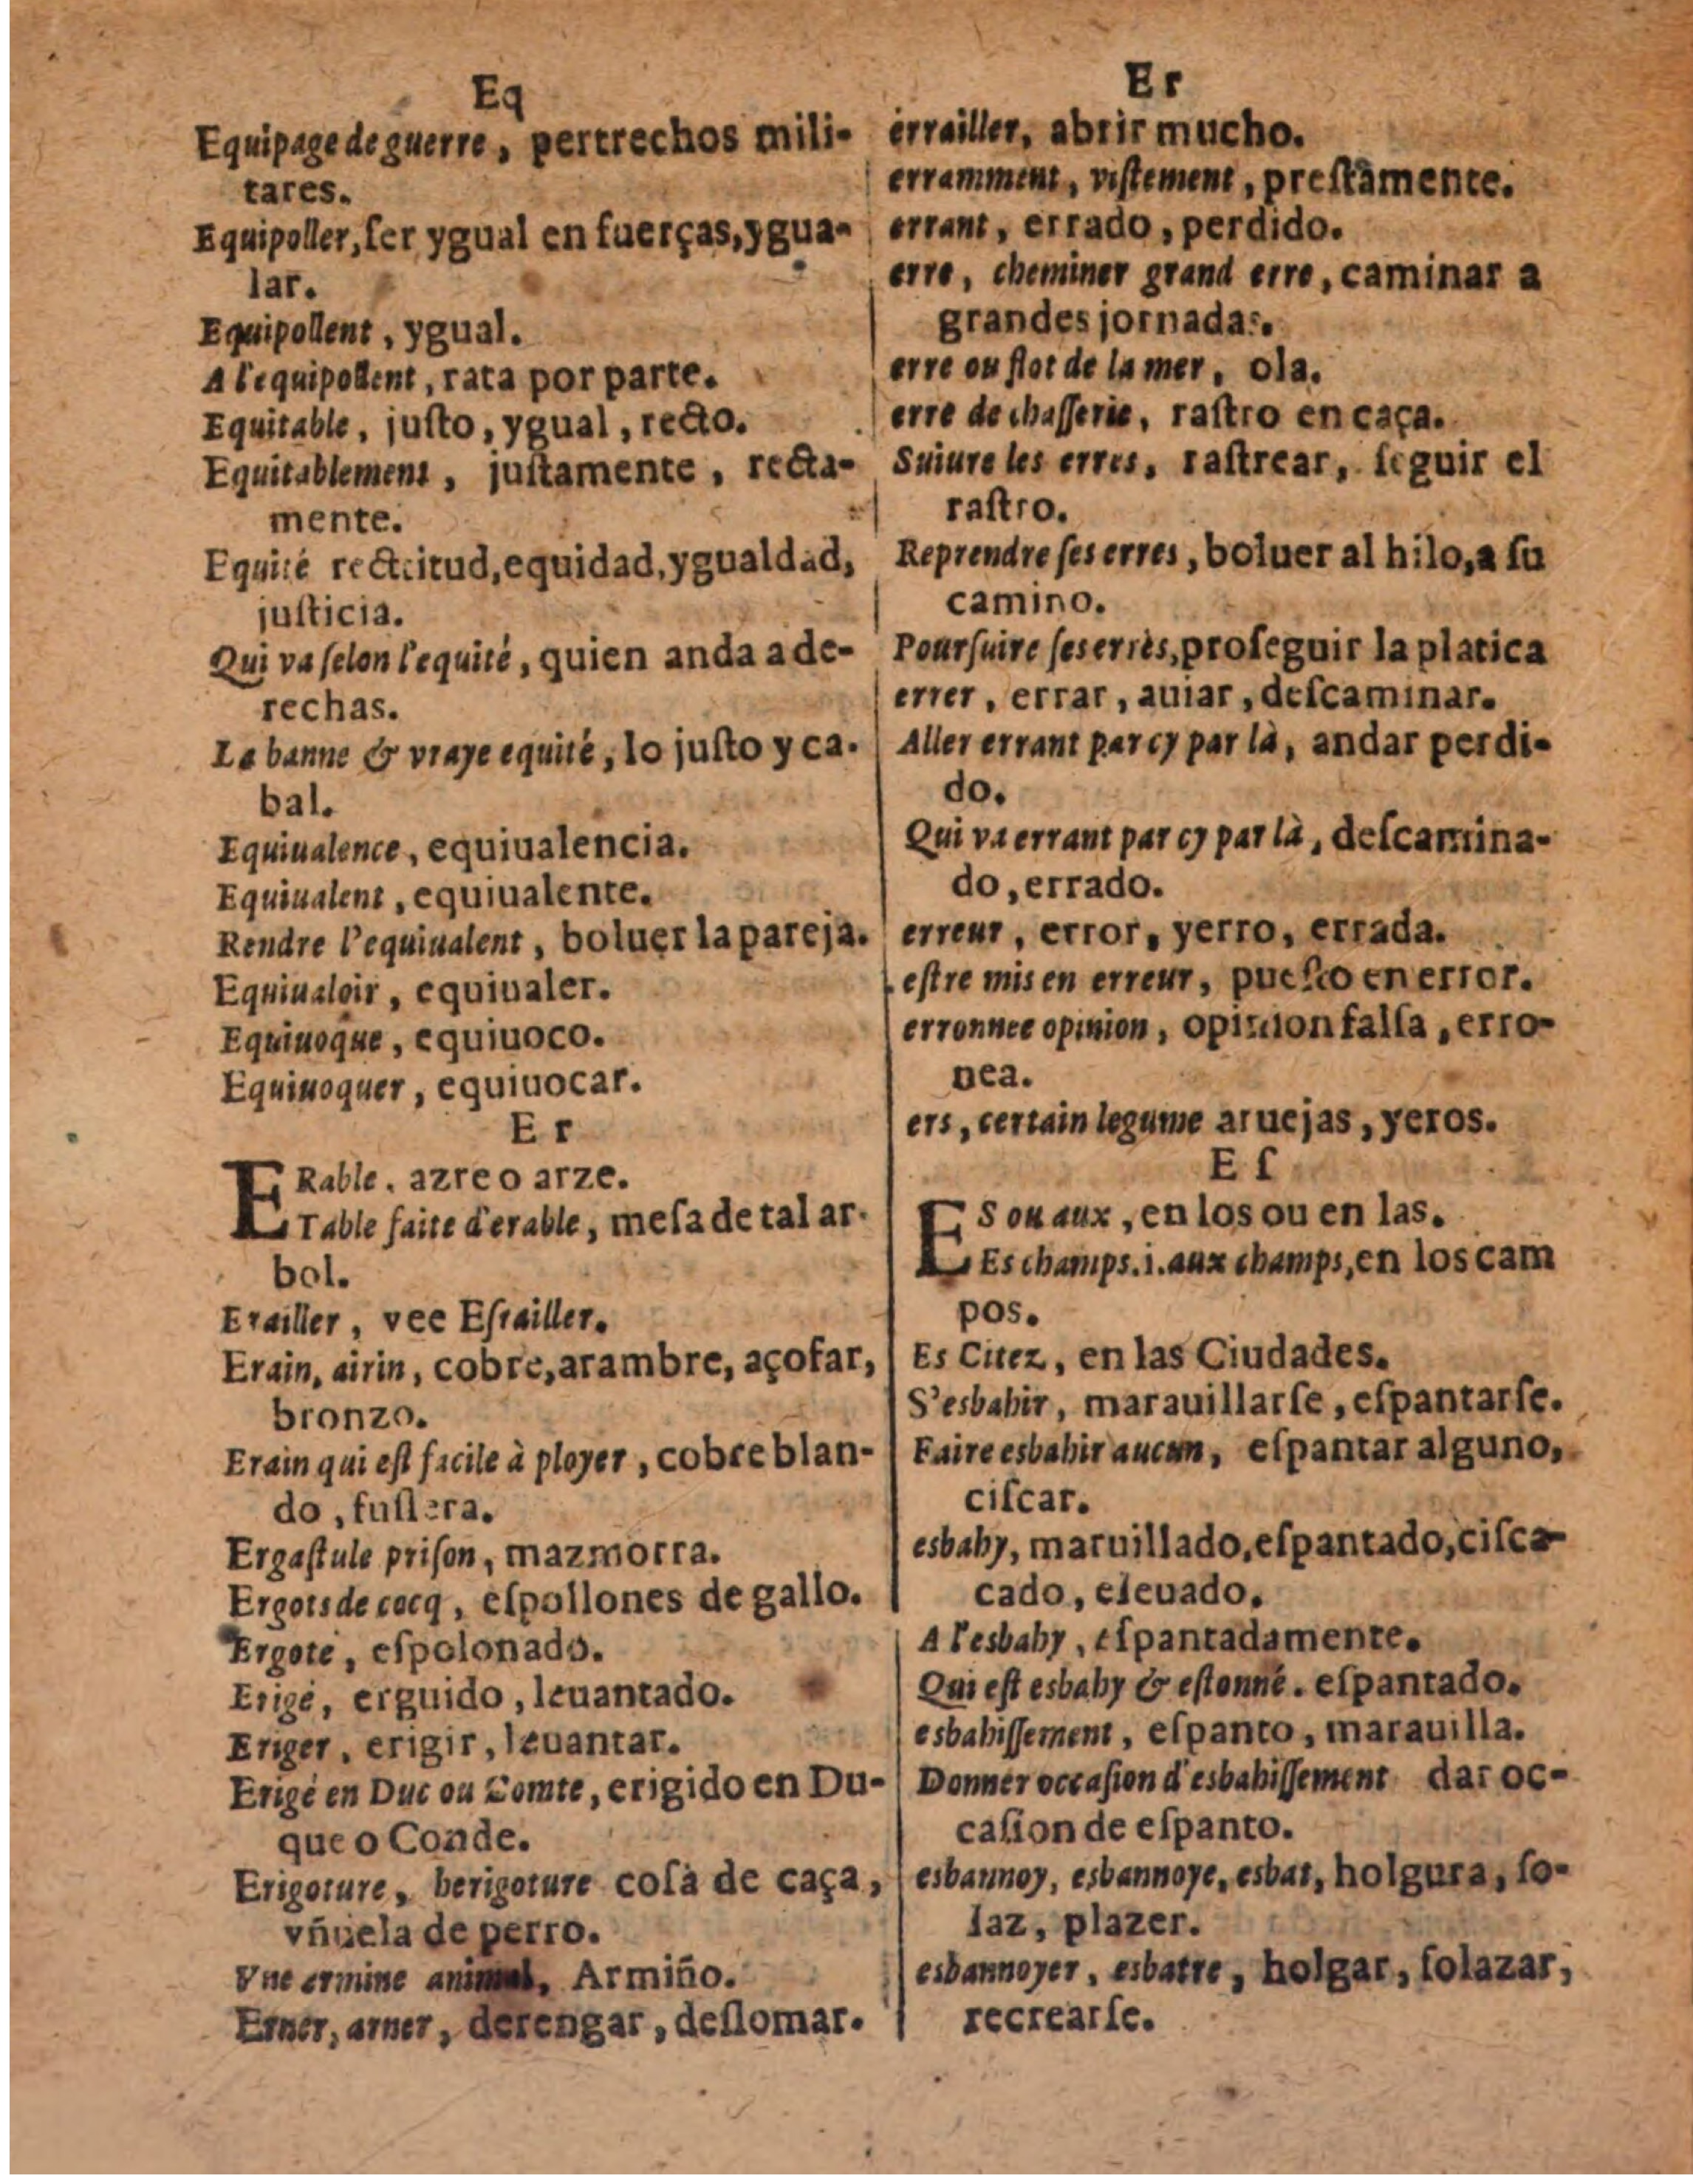 Eq
Equipage de guerre, pertrechos mili-
tares.
Equipoller, ſer ygual en fuerças, ygua-
lar.
Equipollent, ygual.
A l'equipollent, rata por parte.
Equitable, juſto, ygual, recto.
Equitablement, juſtamente, recta-
mente.
Equité rectitud, equidad, ygualdad,
juſticia.
Qui va ſelon l'equité, quien anda a de-
rechas.
La banne & vraye equité, lo juſto y ca-
bal.
Equiualence, equiualencia.
Equiualent, equiualente.
Rendre l'equiualent, boluer la pareja.
Equiualoir, equiualer.
Equiuoque, equiuoco.
Equiuoquer, equiuocar.
E r
ERable, azre o arze.
Table faite d'erable, meſa de tal ar-
bol.
Erailler, vee Eſrailler.
Erain, airin, cobre, arambre, açofar,
bronzo.
Erain qui eſt facile à ployer, cobre blan-
do, fuſlera.
Ergaſtule priſon, mazmorra.
Ergots de cocq, eſpollones de gallo.
Ergoté, eſpolonado.
Erigé, erguido, leuantado.
Eriger, erigir, leuantar.
Erigé en Duc ou Comte, erigido en Du-
que o Conde.
Erigoture, herigoture coſa de caça,
vñuela de perro.
Vne ermine animal, Armiño.
Erner, arner, derengar, deſlomar.
Er
errailler, abrir mucho.
erramment, viſtement, preſtamente.
errant, errado, perdido.
erre, cheminer grand erre, caminar a
grandes jornadas.
erre ou flot de la mer, ola.
erre de chaſſerie, raſtro en caça.
Suiure les erres, raſtrear, ſeguir el
raſtro.
Reprendre ſes erres, boluer al hilo, a ſu
camino.
Pourſuire ſes errès, proſeguir la platica
errer, errar, auiar, deſcaminar.
Aller errant par cy par là, andar perdi-
do.
Qui va errant par cy par là, deſcamina-
do, errado.
erreur, error, yerro, errada.
eſtre mis en erreur, pueſto en error.
erronnee opinion, opinion falſa, erro-
nea.
ers, certain legume aruejas, yeros.
E ſ
ES ou aux, en los ou en las.
Es champs.i.aux champs, en los cam
pos.
Es Citez, en las Ciudades.
S'esbahir, marauillarſe, eſpantarſe.
Faire esbahir aucun, eſpantar alguno,
ciſcar.
esbahy, maruillado, eſpantado, ciſca-
cado, eleuado.
A l'esbahy, eſpantadamente.
Qui eſt esbahy & eſtonné. eſpantado.
esbahiſſement, eſpanto, marauilla.
Donner occaſion d'esbahiſſement dar oc-
caſion de eſpanto.
esbannoy, esbannoye, esbat, holgura, ſo-
laz, plazer.
esbannoyer, esbatre, holgar, ſolazar,
recrearſe.